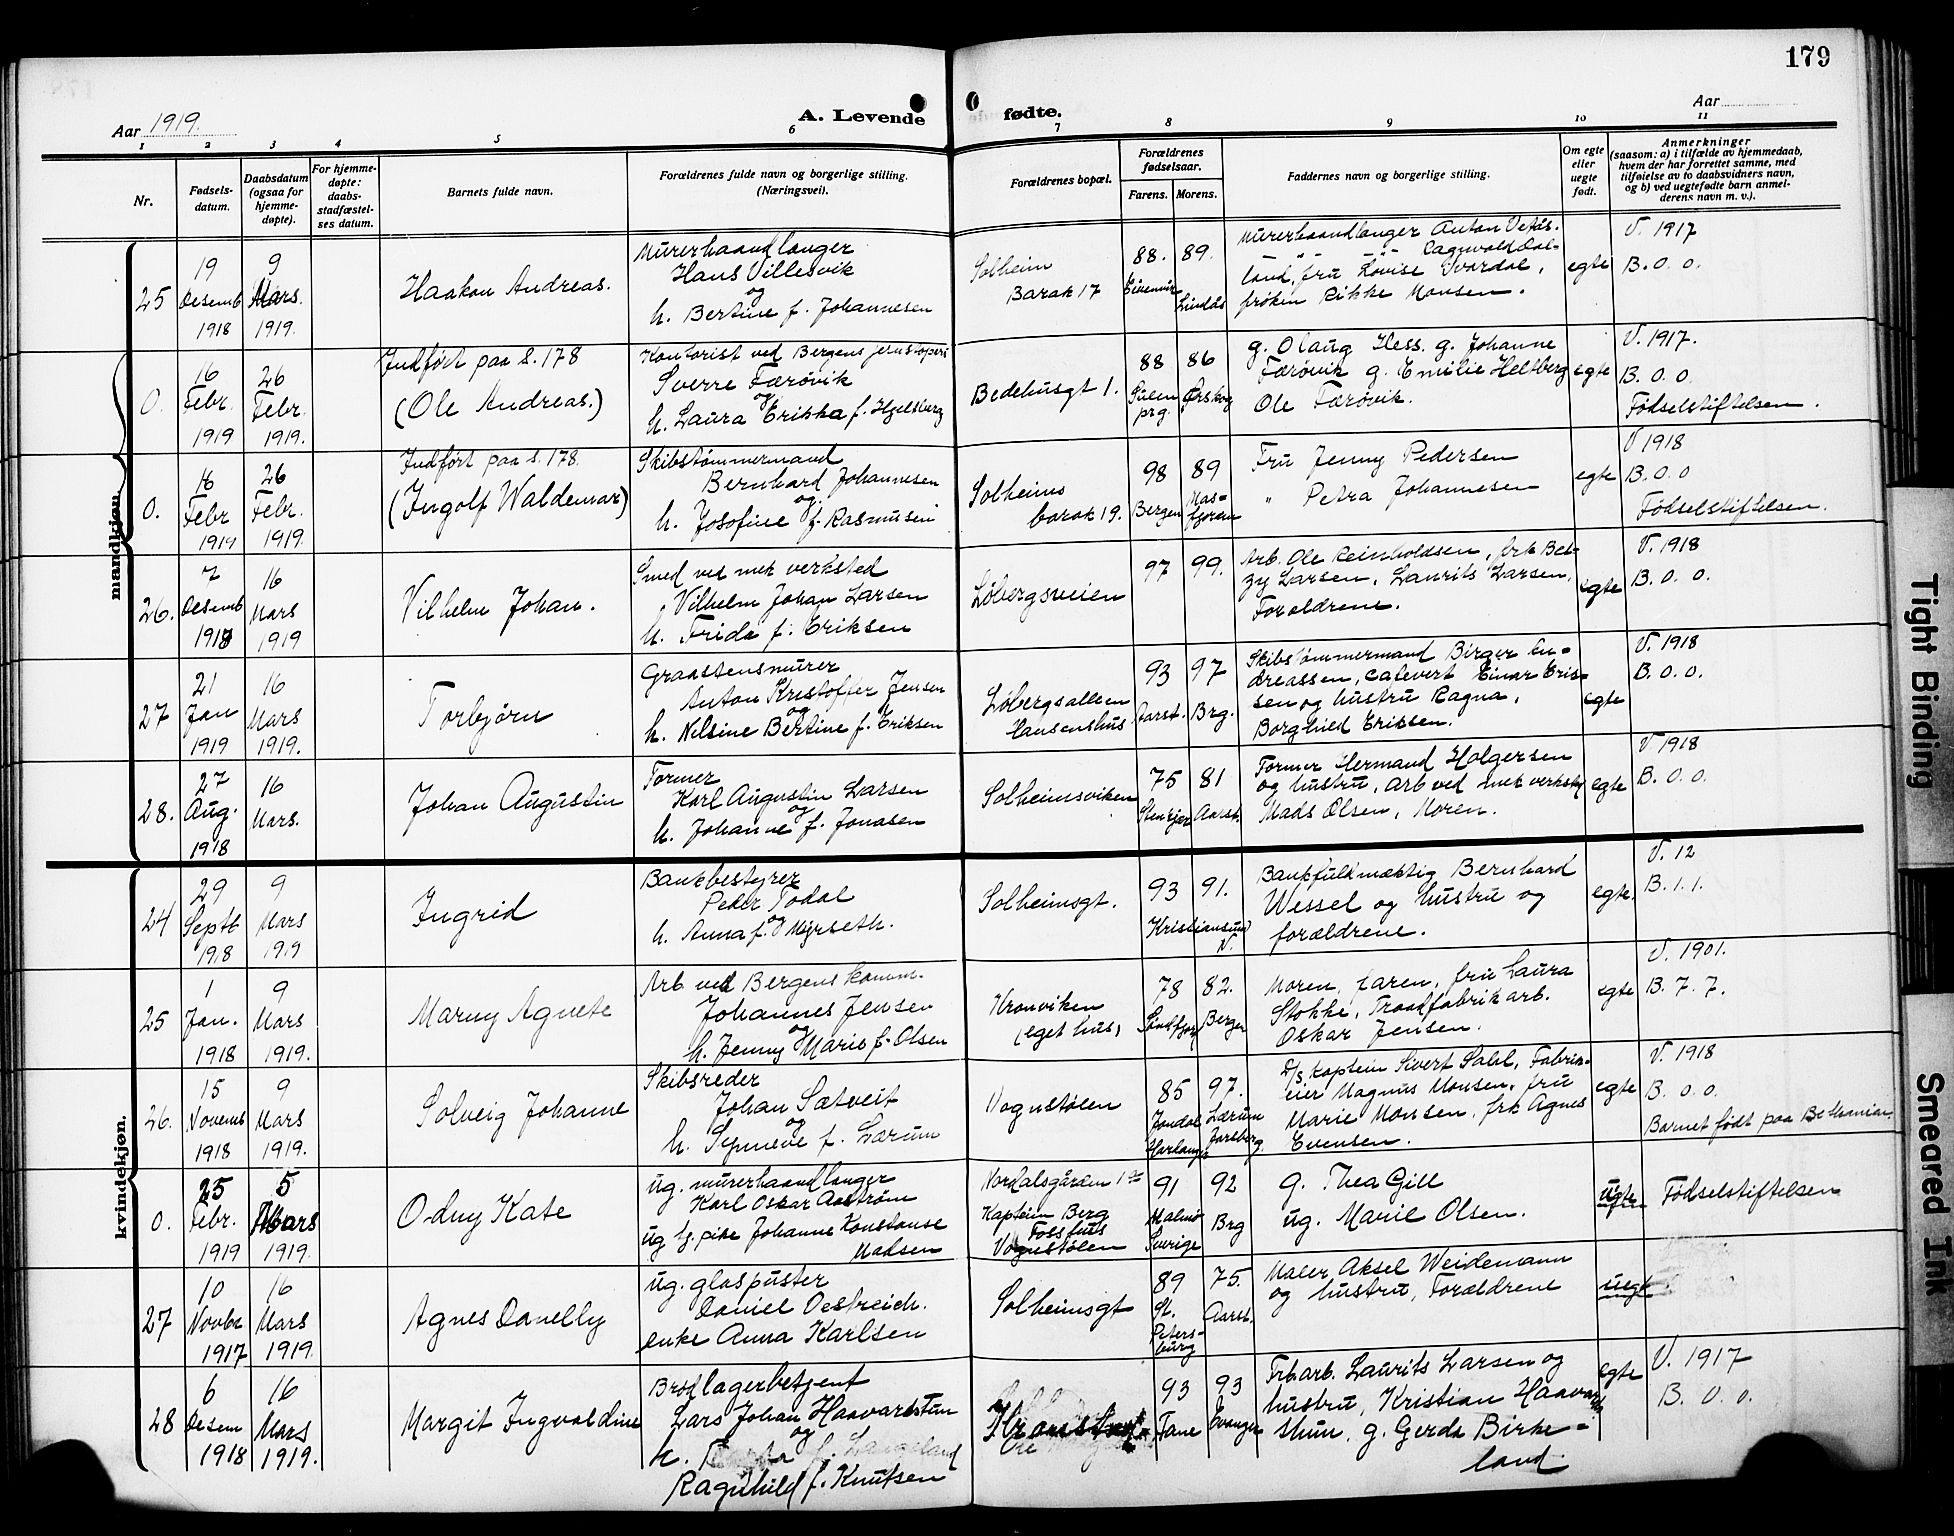 179
Aar 1919.
A. Levende
fødte.
Aar
1
2
3
4
5
6
7
8
9
10
11
Nr.
Fødsels-
datum.
Daabsdatum
(ogsaa for
hjemme-
døpte).
For hjemme-
døpte:
daabs-
stadfæstel-
ses datum.
Barnets fulde navn.
Forældrenes fulde navn og borgerlige stilling.
(Næringsvei).
Forældrenes bopæl.
Forældrenes
fødselsaar.
Farens.
Morens.
Faddernes navn og borgerlige stilling.
Om egte
eller
uegte
født.
Anmerkninger
(saasom: a) i tilfælde av hjemmedaab,
hvem der har forrettet samme, med
tilføielse av to daabsvidners navn,
og b) ved uegtefødte barn anmel-
derens navn m. v.).
mandkjøn.
25
19
Desemb
1918
9
Mars.
1919.
Haakon Andreas.
Murerhaandlanger
Hans Villesvik
og
h. Bertine f. Johannesen
Solheim
Barak 17
88.
89.
Lindås
Murerhaandlanger Anton
land, fru Lovise
frøken Rikke Monsen.
egte
V. 1917
B. 0. 0.
0.
16
Febr.
1919
26
Febr.
1919.
Indført paa s. 178
(Ole Andreas.)
Kontorist ved Bergens jernstøperi
Sverre Færøvik
og
h. Laura Erikka f. Hjelsberg
Bedehusgt 1.
88
prg.
86
Ørskog
g. Olaug Hess. g. Johanne
Færøvik g. Emilie Heltberg
Ole Færøvik.
egte
V. 1917.
B. 0. 0.
Fødselstiftelsen.
0.
16
Febr
1919
26
Febr.
1919.
Indført paa s. 178.
(Ingolf Waldemar)
Skibstømmermand
Bernhard Johannesen
og
h. Josofine f. Rasmusen
Solheims
barak 19.
98
Bergen
89
Mas=
fjorden
Fru Jenny Pedersen
" Petra Johannesen
egte
V 1918
B. 0. 0
Fødselstiftelsen.
26.
7
Desemb
1918
16
Mars
1919
Vilhelm Johan.
Smed ved mek verksted
Vilhelm Johan Larsen
h. Frida f. Eriksen
Løbergsveien
97
99.
Arb. Ole Reinholdsen, frk Bet-
zy Larsen, Laurits Larsen,
Forældrene.
egte
V. 1918
B. 0. 0.
27
21
Jan
1919
16
Mars
1919.
Torbjørn
Graastensmurer
Anton Kristoffer Jensen
og
h. Nilsine Bertine f. Eriksen
Løbergsalleen
Hansenshus
93
Aarst.
97
Brg.
Skibstømmermand Birger An=
dreassen, cafevert Einar Erik-
sen og hustru Ragna,
Borghild Eriksen.
egte
V. 1918
B. 0. 0.
28.
27
Aug.
1918
16
Mars.
Johan Augustin
Former
Karl Augustin Larsen
og
h. Johanne f. Jonasen
Solheimsviken
75
Stenkjær
81
Aarst.
Former Hermand Holgersen
og hustru, Arb ved mek verksted
Mads Olsen, Moren.
egte
V 1918
B. 0. 0.
kvindekjøn.
24
29
Septb
1918
9
Mars
1919
Ingrid
Bankbestyrer
Peder Todal
og
h. Anna f. Myrseth.
Solheimsgt.
93
91.
Kristiansund
N.
Bankfuldmæktig Bernhard
Wessel og hustru og
forældrene.
egte.
V. 12
B. 1. 1.
25
1
Jan.
1918
9
Mars
1919.
Marny Agnete
Arb ved Bergens komm.
Johannes Jensen
og
h. Jenny Marie f. Olsen
Kronviken
(eget hus)
78
Søndfjord
82.
Bergen
Moren, faren, fru Laura
Stokke, Traadfabrikarb.
Oskar Jensen.
egte
V. 1901.
B. 7. 7.
26.
15
Novemb
1918
9
Mars
1919.
Solveig Johanne
Skibsreder
Johan Sætveit
og
h. Synneve f. Lærum
Vognstølen
85
Jondal
Hardanger
97.
Lærum
Jarlsberg.
D/s Kaptein Sivert Sahl, Fabrik=
eier Magnus Monsen, fru
Marie Monsen, frk Agnes
Evensen.
egte
V. 1918
B. 0. 0.
Barnet født paa Bethanien.
0.
25
Febr.
1919
5
Mars
1919.
Odny Kate
ug. murerhaandlanger
Karl Oskar Aastrøm
ug tj. pike Johanne Konstanse
Madsen
Nordalsgården
Kaptein Berg
Foss hus
Vognstølen
91
Malmø
Sverige
92
Brg
g. Thea Gill
ug. Marie Olsen.
ugte
Fødselstiftelsen
27
10
Novbr
1917
16
Mars
1919.
Agnes Danelly
ug. glaspuster
Daniel Oestreich.
enke Anna Karlsen
Solheimsgt
89
St.
Peters-
burg
75.
Aarst.
Maler Aksel Weidemann
og hustru, Forældrene
uegt
28
6
Desem
1918
16
Mars
1919.
Margit Ingvaldine
Brødlagerbetjent
Lars Johan Haavardstun
og
h. f. Langeland
Ragnhild f. Knutsen
93
Fane
93
Evanger
Frb.arb. Laurits Larsen og
hustru, Kristian Haavard
stun, g. Gerda Birke=
land.
egte
V. 1917
B. 0. 0.
Tight Binding
Smeared Ink